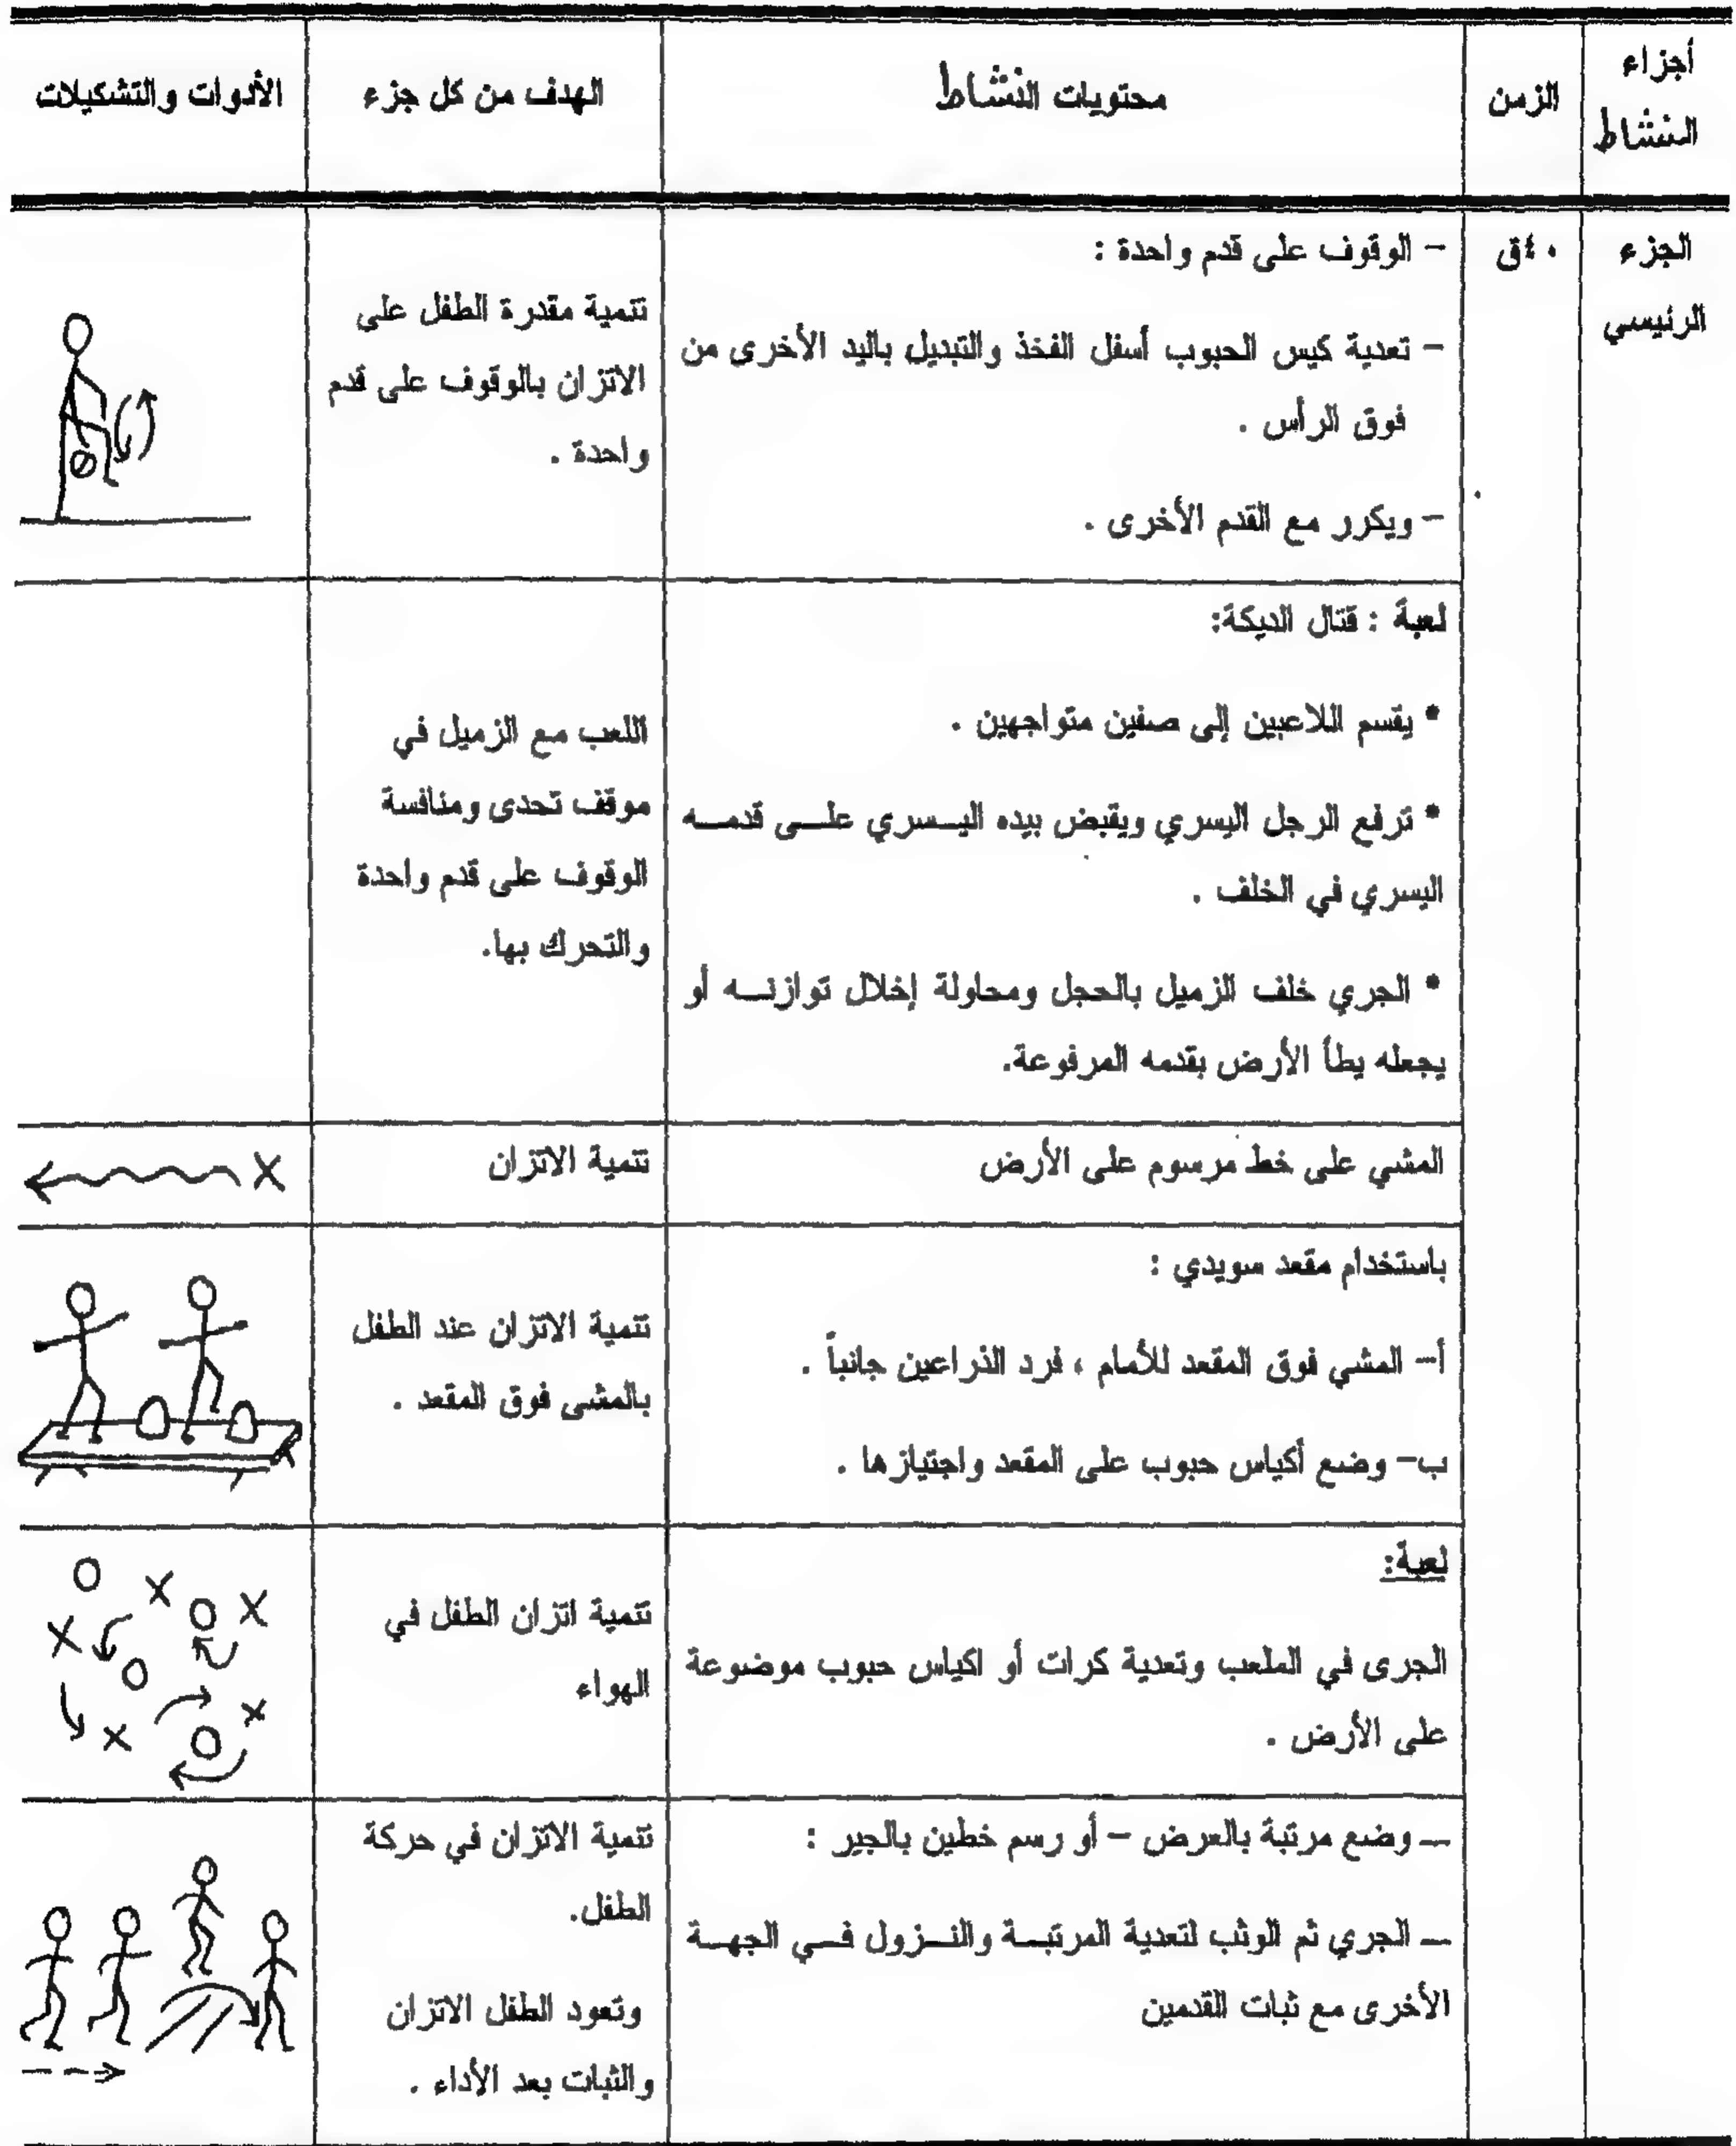 أجزاء
النشاط
الزمن
محتويات النشاط
الهدف من كل جزء
الأدوات والتشكيلات
الجزء
الرئيسي
٤٠ق
– الوقوف على قدم واحدة :
– تعدية كيس الحبوب أسفل الفخذ والتبديل باليد الأخرى من
فوق الرأس .
– ويكرر مع القدم الأخرى .
تنمية مقدرة الطفل على
الاتزان بالوقوف على قدم
واحدة .
لعبة : قتال الديكة:
* يقسم اللاعبين إلى صفين متواجهين .
* ترفع الرجل اليسري ويقبض بيده اليسري على قدمه
اليسري في الخلف .
* الجري خلف الزميل بالحجل ومحاولة إخلال توازنه أو
يجعله يطأ الأرض بقدمه المرفوعة.
اللعب مع الزميل في
موقف تحدى ومنافسة
الوقوف على قدم واحدة
والتحرك بها.
المشي على خط مرسوم على الأرض
تنمية الاتزان
باستخدام مقعد سويدي :
أ– المشي فوق المقعد للأمام ، فرد الذراعين جانباً .
ب– وضع أكياس حبوب على المقعد واجتيازها .
تنمية الاتزان عند الطفل
بالمشى فوق المقعد .
لعبة:
الجرى في الملعب وتعدية كرات أو اكياس حبوب موضوعة
على الأرض .
تنمية اتزان الطفل في
الهواء
– وضع مرتبة بالعرض – أو رسم خطين بالجير :
– الجري ثم الوثب لتعدية المرتبة والنزول في الجهة
الأخرى مع ثبات القدمين
تنمية الاتزان في حركة
الطفل.
وتعود الطفل الاتزان
والثبات بعد الأداء .